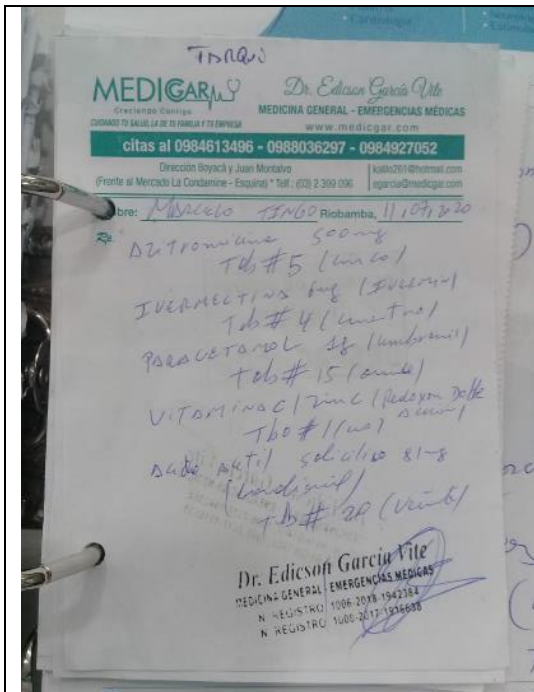 TARQUI
MEDICGAR
Creciendo Contigo
CUIDANDO TU SALUD, LA DE TU FAMILIA Y TU EMPRESA
Dr. Edicson García Vite
MEDICINA GENERAL - EMERGENCIAS MÉDICAS
www.medicgar.com
citas al 0984613496 - 0988036297 - 0984927052
Dirección Boyacá y Juan Montalvo
(Frente al Mercado La Condamine - Esquina) * Telf.: (03) 2 399 096
kalilo261@hotmail.com
egarcia@medicgar.com
bre: MARCELO TINGO Riobamba, 11/07/2020
Rp.
Azitromicina 500mg
Tab # 5 (cinco)
IVERMECTINA 6mg
Tab # 4 (cuatro)
PARACETAMOL 1g (Umbramil)
Tab # 15
VITAMINA C / Zinc (Redoxon Doble
Tbo # 1 (uno)
Acido Acetil Salicilico 81mg
(Cardioaspirina)
Tab # 20 (veinte)
Dr. Edicson García Vite
MEDICINA GENERAL - EMERGENCIAS MÉDICAS
N REGISTRO 1006-2018-1942384
N REGISTRO 1006-2017-1916688